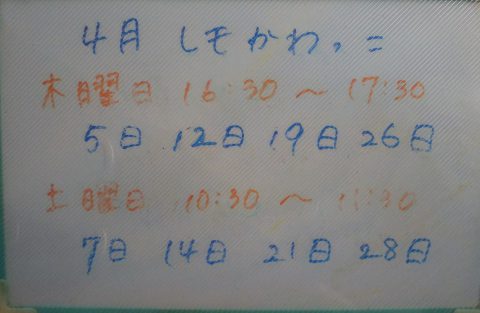 4月 しモかわっこ
木曜日 16:30 ～ 17:30
5日 12日 19日 26日
土曜日 10:30 ～ 11:30
7日 14日 21日 28日